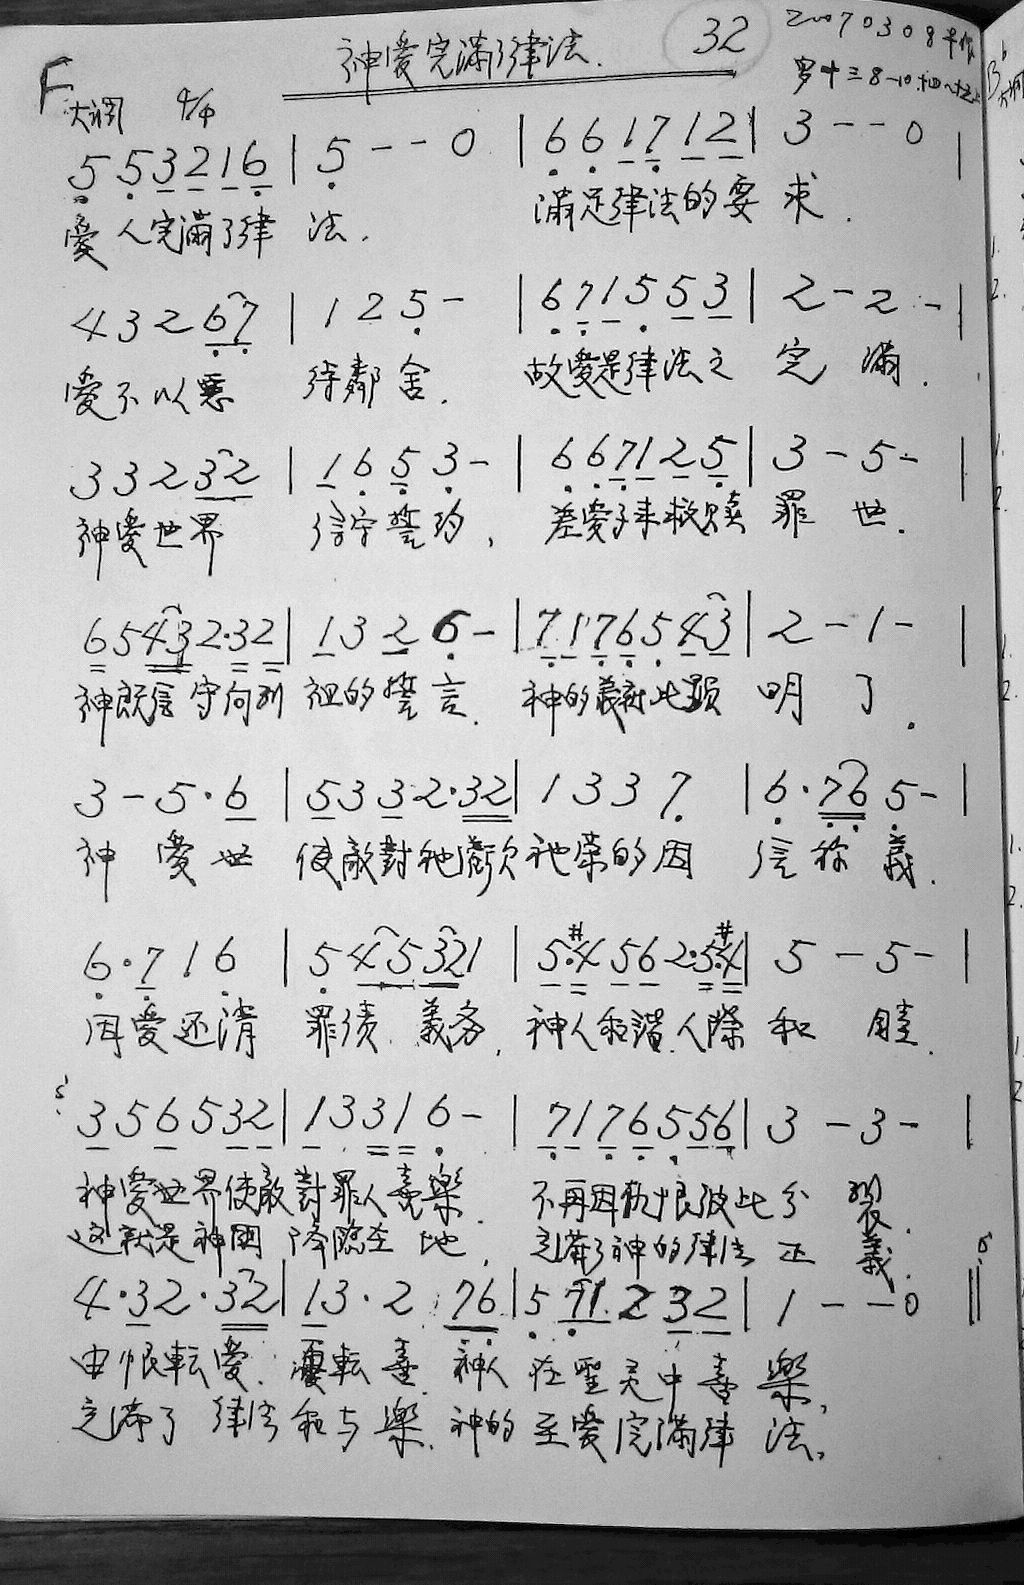 神愛完滿了律法.
32
20070308
罗十三8-10.
F大调 4/4
5 5 3 2 1 6 | 5 - - 0 | 6 6 1 7 1 2 | 3 - - 0 |
愛人完滿了律法. 滿足律法的要求.
4 3 2 6 7 | 1 2 5 - | 6 7 1 5 5 3 | 2 - 2 - |
愛不以惡待鄰舍. 故愛是律法之完滿.
3 3 2 3 2 | 1 6 5 3 - | 6 6 7 1 2 5 | 3 - 5 - |
神愛世界信守誓约, 差愛子来救贖罪世.
6 5 4 3 2 · 3 2 | 1 3 2 6 - | 7 1 7 6 5 4 3 | 2 - 1 - |
神既信守向列祖的誓言. 神的義就此顕明了.
3 - 5 · 6 | 5 3 3 2 · 3 2 | 1 3 3 7 | 6 · 7 6 5 - |
神愛世使敵對祂虧欠祂荣的因信称義.
6 · 7 1 6 | 5 4 5 3 2 1 | 5 · #4 5 6 2 · 5 #4 | 5 - 5 - |
因愛还清罪债義务, 神人和諧人際和睦.
3 5 6 5 3 2 | 1 3 3 1 6 - | 7 1 7 6 5 5 6 | 3 - 3 - |
神愛世界使敵對罪人喜樂. 不再因仇恨彼此分裂.
这就是神國降臨在地, 完滿了神的律法正義.
4 · 3 2 · 3 2 | 1 3 · 2 7 6 | 5 7 1 2 3 2 | 1 - - 0 ||
由恨転愛. 憂転喜. 神人在聖灵中喜樂,
完滿了律法和与樂. 神的至愛完滿律法,